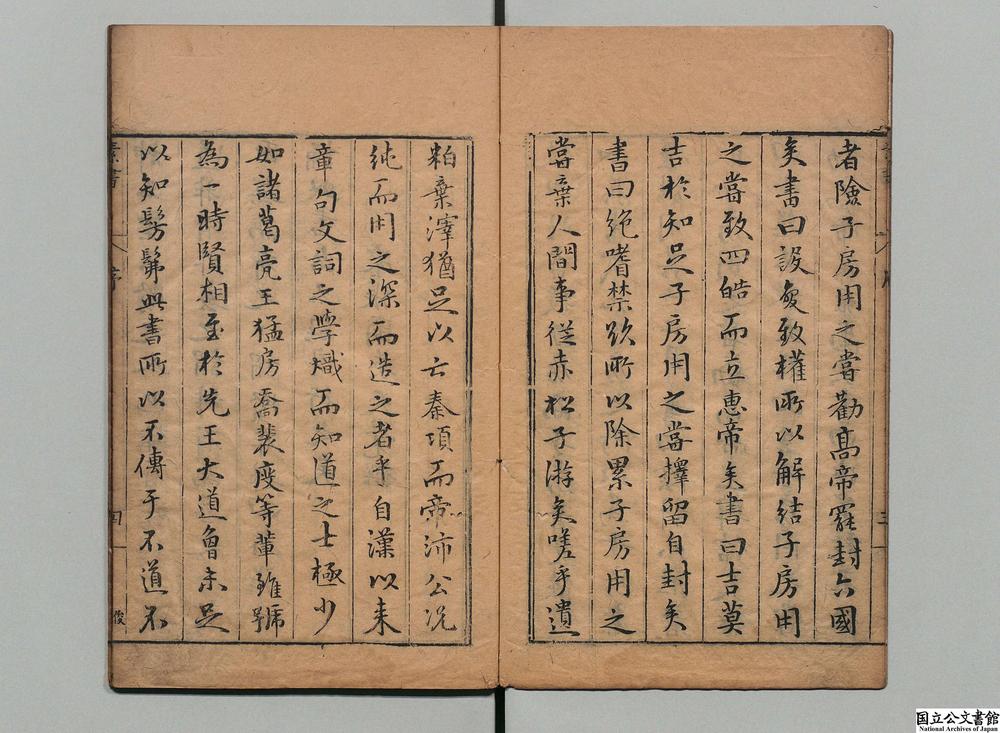 者險子房用之嘗勸髙帝罷封六國
矣書曰設變致權所以解結子房用
之嘗致四皓而立惠帝矣書曰吉莫
吉於知足子房用之嘗擇留自封矣
書曰絶嗜禁欲所以除累子房用之
嘗棄人間事従赤松子游矣嗟乎遺
粕棄滓猶足以亡秦項而帝沛公况
純而用之深而造之者乎自漢以来
章句文詞之學熾而知道之士極少
如諸葛亮王猛房喬裴度等輩雖號
為一時賢相至於先王大道曾未足
以知髣髴此書所以不傳于不道不
素書
序
四
俊
国立公文書館
National Archives of Japan